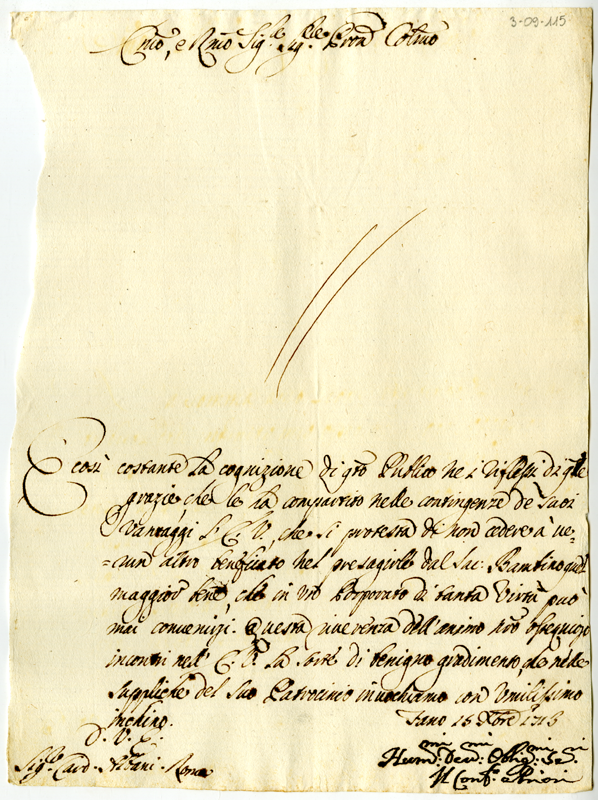 3-09-115
Emo, e Rmo Sig.re Sig.re Pron Colmo
È così costante la cognizione di qto Publico ne i riflessi di qlle
grazie, che le ha compartito nelle contingenze de suoi
Vantaggi l'E. V., che si protesta di non cedere à ve-
=run altro beneficato nel presagirle dal Sac. Bambino qual
maggior bene, che in un Porporato di tanta Virtù può
mai convenirsi. Questa riverenza dell'animo nro ossequioso
incontri nell'E. V. la sorte di benigno gradimento, che nelle
suppliche del suo Patrocinio invochiamo con Umilissimo
inchino.
Fano 15 Xbre 1715
D. V. E.
Sig.r Card. Albani. Roma
Humi. Devmi. Obligmi. Si
Il Conf.e e Priori